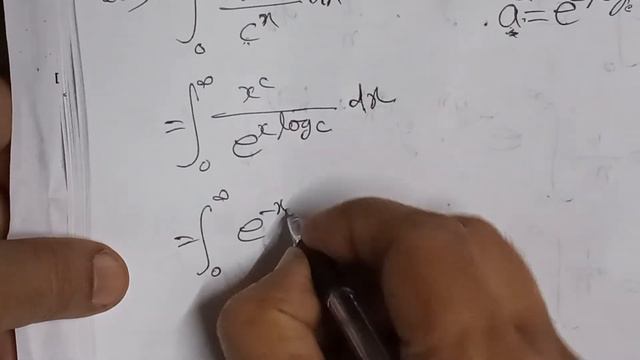 ∫₀ / cˣ dx
a = e
= ∫₀^∞ x^c / e^{x log c} dx
= ∫₀^∞ e^{-x